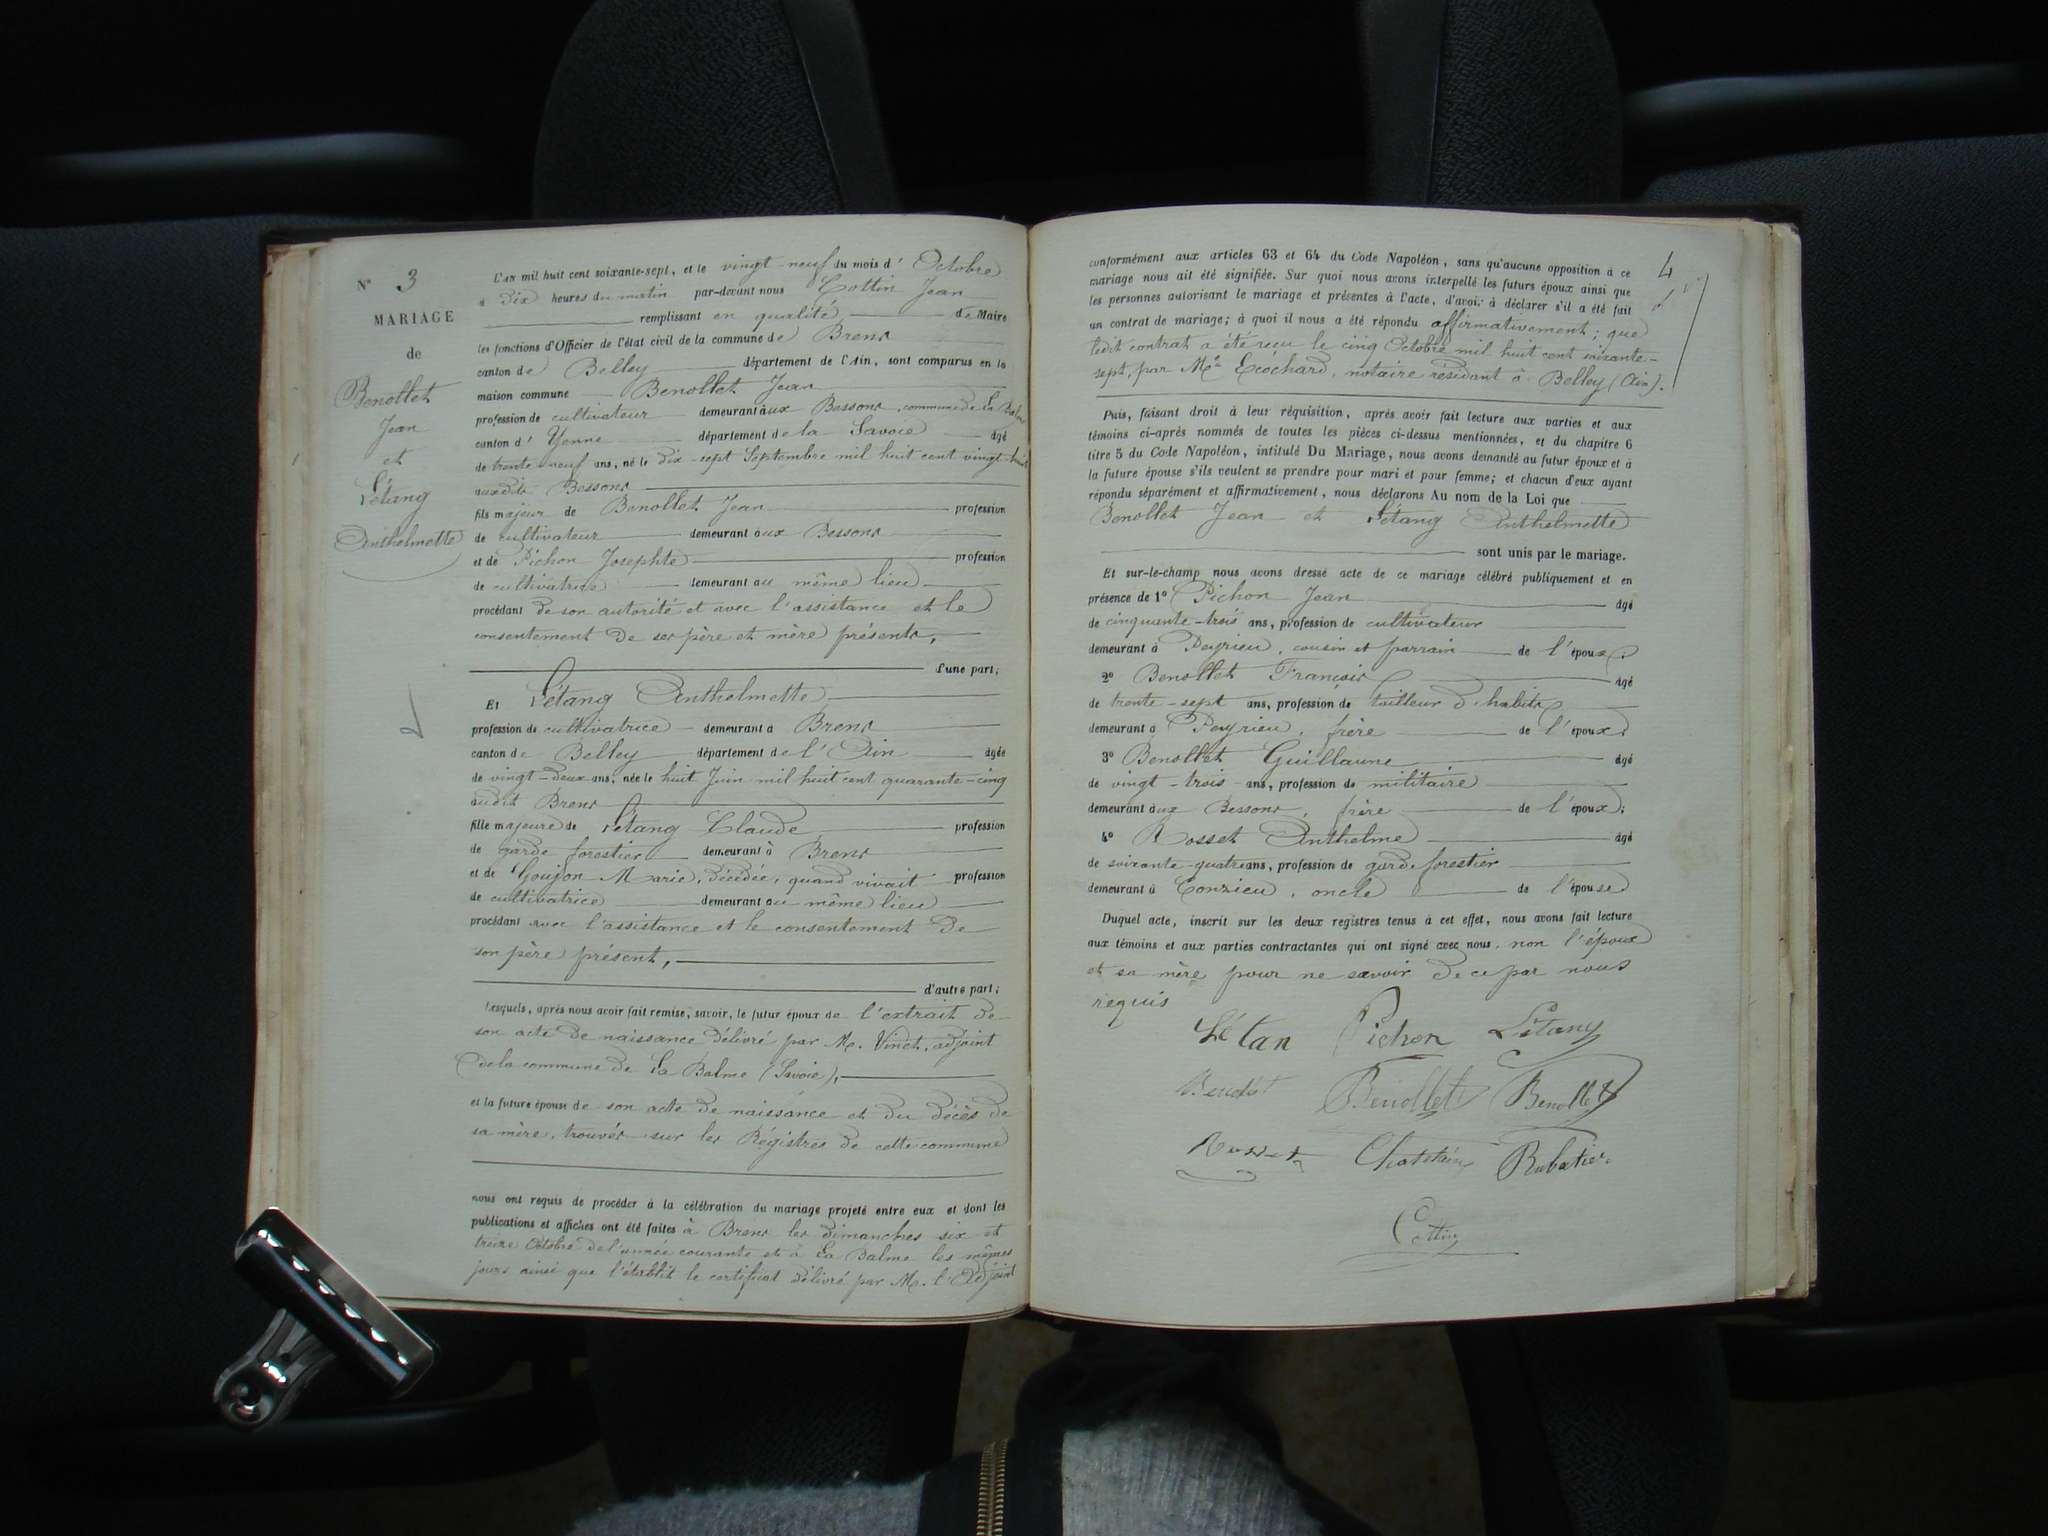 N° 3
MARIAGE
de
Benollet
Jean
et
Létang
Anthelmette
L'an mil huit cent soixante-sept, et le vingt-neuf du mois d'Octobre
à Dix heures du matin par-devant nous Cottin Jean
remplissant en qualité de Maire
les fonctions d'Officier de l'état civil de la commune de Brens
canton de Belley département de l'Ain, sont comparus en la
maison commune Benollet Jean
profession de cultivateur demeurant aux Bessons, commune de La Balme
canton d'Yenne département de la Savoie âgé
de trente-neuf ans, né le dix-sept Septembre mil huit cent vingt-huit
auxdits Bessons
fils majeur de Benollet Jean profession
de cultivateur demeurant aux Bessons
et de Pichon Josephte profession
de cultivatrice demeurant au même lieu
procédant de son autorité et avec l'assistance et le
consentement de ses père et mère présents,
d'une part;
Et Létang Anthelmette
profession de cultivatrice demeurant à Brens
canton de Belley département de l'Ain âgée
de vingt-deux ans, née le huit Juin mil huit cent quarante-cinq
audit Brens
fille majeure de Létang Claude profession
de garde forestier demeurant à Brens
et de Goujon Marie, décédée, quand vivait profession
de cultivatrice demeurant au même lieu
procédant avec l'assistance et le consentement de
son père présent,
d'autre part;
Lesquels, après nous avoir fait remise, savoir, le futur époux de l'extrait de
son acte de naissance délivré par M. Vinet, adjoint
de la commune de La Balme (Savoie),
et la future épouse de son acte de naissance et du décès de
sa mère, trouvés sur les Régistres de cette commune
nous ont requis de procéder à la célébration du mariage projeté entre eux et dont les
publications et affiches ont été faites à Brens les dimanches six et
treize Octobre de l'année courante et à La Balme les mêmes
jours ainsi que l'établit le certificat délivré par M. l'Adjoint
4
conformément aux articles 63 et 64 du Code Napoléon, sans qu'aucune opposition à ce
mariage nous ait été signifiée. Sur quoi nous avons interpellé les futurs époux ainsi que
les personnes autorisant le mariage et présentes à l'acte, d'avoir à déclarer s'il a été fait
un contrat de mariage; à quoi il nous a été répondu affirmativement; que
ledit contrat a été reçu le cinq Octobre mil huit cent soixante-
sept, par Me Ecochard, notaire résidant à Belley (Ain).
Puis, faisant droit à leur réquisition, après avoir fait lecture aux parties et aux
témoins ci-après nommés de toutes les pièces ci-dessus mentionnées, et du chapitre 6
titre 5 du Code Napoléon, intitulé Du Mariage, nous avons demandé au futur époux et à
la future épouse s'ils veulent se prendre pour mari et pour femme; et chacun d'eux ayant
répondu séparément et affirmativement, nous déclarons Au nom de la Loi que
Benollet Jean et Létang Anthelmette
sont unis par le mariage.
Et sur-le-champ nous avons dressé acte de ce mariage célébré publiquement et en
présence de 1° Pichon Jean âgé
de cinquante-trois ans, profession de cultivateur
demeurant à Peyrieu, cousin et parrain de l'époux;
2° Benollet François âgé
de trente-sept ans, profession de tailleur d'habits
demeurant à Peyrieu, frère de l'époux;
3° Benollet Guillaume âgé
de vingt-trois ans, profession de militaire
demeurant aux Bessons, frère de l'époux;
4° Rosset Anthelme âgé
de soixante-quatre ans, profession de garde forestier
demeurant à Conzieu, oncle de l'épouse
Duquel acte, inscrit sur les deux registres tenus à cet effet, nous avons fait lecture
aux témoins et aux parties contractantes qui ont signé avec nous, non l'époux
et sa mère pour ne savoir de ce par nous
requis
Létan Pichon Létang
Benollet Benollet
Rosset Chatelain Rubatier
Cottin